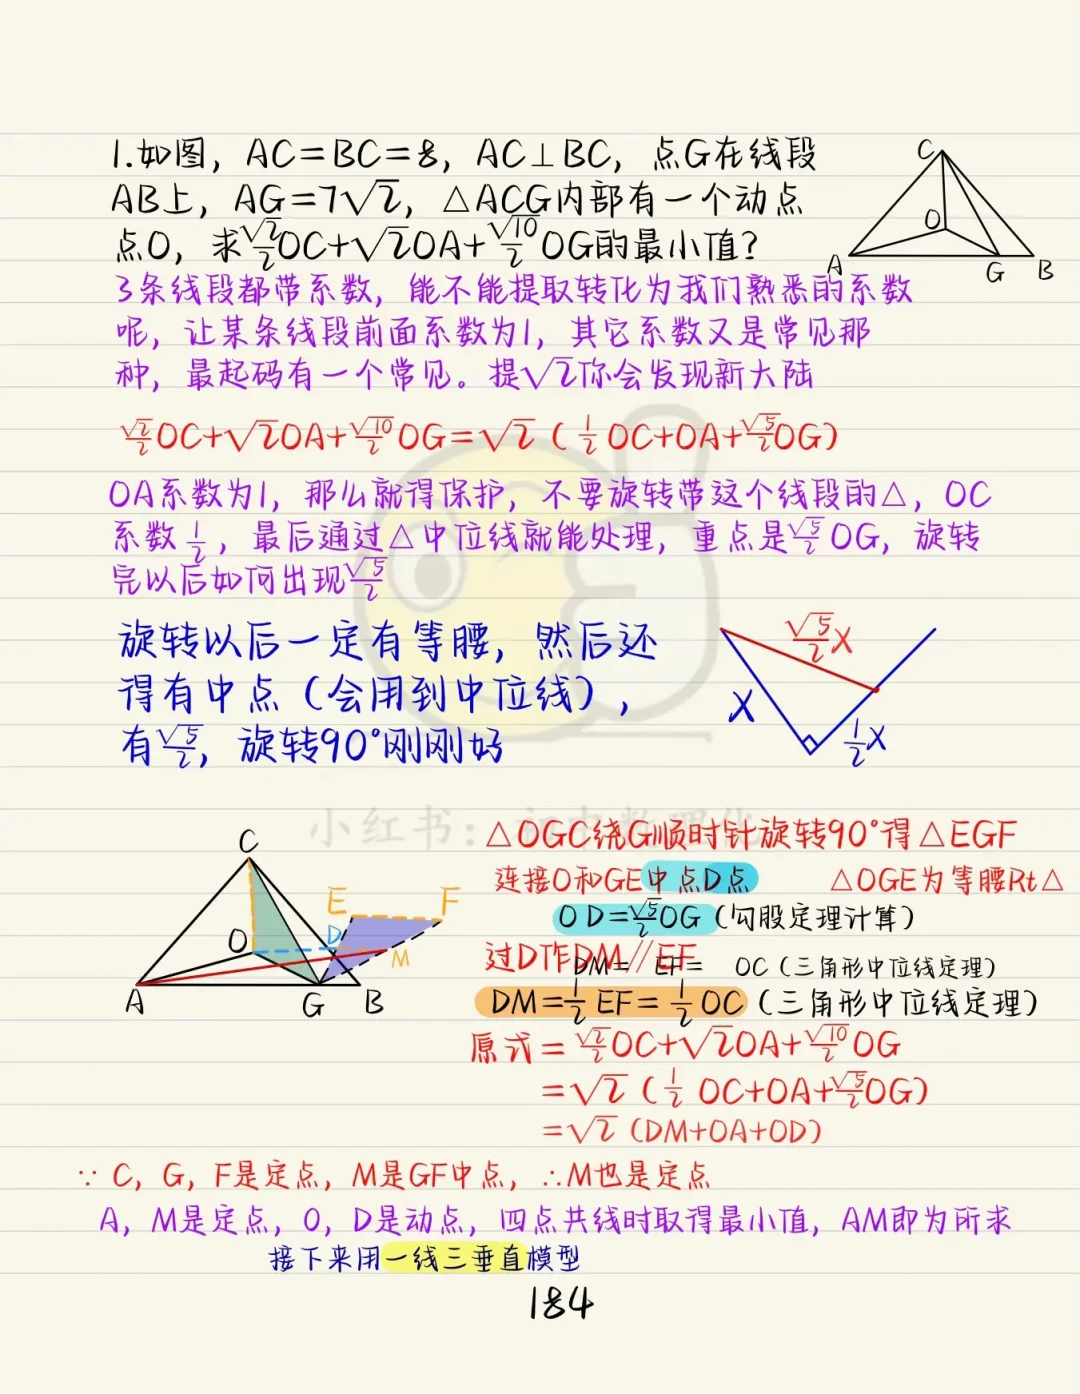 1.如图，AC=BC=8，AC⊥BC，点G在线段
AB上，AG=7√2，△ACG内部有一个动点
点O，求√2/2OC+√2OA+√10/2OG的最小值?
C
O
A
G
B
3条线段都带系数，能不能提取转化为我们熟悉的系数
呢，让某条线段前面系数为1，其它系数又是常见那
种，最起码有一个常见。提√2你会发现新大陆
√2/2OC+√2OA+√10/2OG=√2（1/2 OC+OA+√5/2OG）
OA系数为1，那么就得保护，不要旋转带这个线段的△，OC
系数1/2，最后通过△中位线就能处理，重点是√5/2OG，旋转
完以后如何出现√5/2
旋转以后一定有等腰，然后还
得有中点（会用到中位线），
有√5/2，旋转90°刚刚好
√5/2X
X
1/2X
小红书：初中数理化
C
E
F
O
D
M
A
G
B
△OGC绕G顺时针旋转90°得△EGF
连接O和GE中点D点 △OGE为等腰Rt△
OD=√5/2OG（勾股定理计算）
过D作DM//EF
DM= EF= OC（三角形中位线定理）
DM=1/2EF=1/2OC（三角形中位线定理）
原式=√2/2OC+√2OA+√10/2OG
=√2（1/2 OC+OA+√5/2OG）
=√2（DM+OA+OD）
∵C，G，F是定点，M是GF中点，∴M也是定点
A，M是定点，O，D是动点，四点共线时取得最小值，AM即为所求
接下来用一线三垂直模型
184